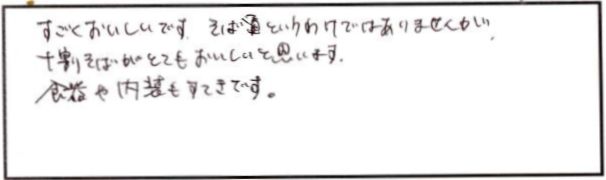 すごくおいしいです. そば通というわけではありませんが,
十割そばがとてもおいしいと思います.
食器や内装もすてきです。